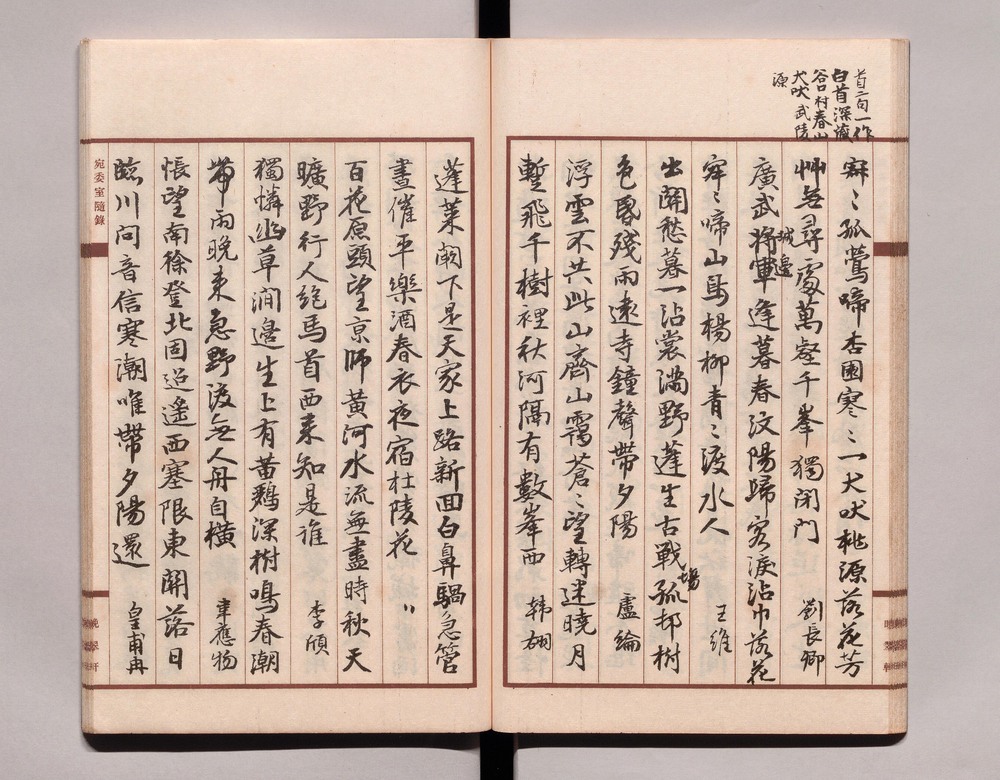 首二句一作
白首深藏
谷口村春山
犬吠武陵
源
寂〻孤鶯啼杏園寒〻一犬吠桃源落花芳
艸無尋處萬壑千峯獨閉門 劉長卿
廣武將軍逢暮春汶陽歸客淚沾巾落花
城邊
寂〻啼山鳥楊柳青〻渡水人 王維
出關愁暮一沾裳滿野蓬生古戰場孤邨樹
色昏殘雨遠寺鐘聲帶夕陽 盧綸
浮雲不共此山齊山靄蒼〻望轉迷曉月
暫飛千樹裡秋河隔有數峯西 韓翃
蓬萊闕下是天家上路新回白鼻騧急管
晝催平樂酒春衣夜宿杜陵花 〃
百花原頭望京師黃河水流無盡時秋天
曠野行人絶馬首西来知是誰 李頎
獨憐幽草澗邊生上有黃鸝深樹鳴春潮
帶雨晚来急野渡無人舟自橫 韋應物
悵望南徐登北固迢遙西塞限東關落日
臨川問音信寒潮唯帶夕陽還 皇甫冉
宛委室隨錄